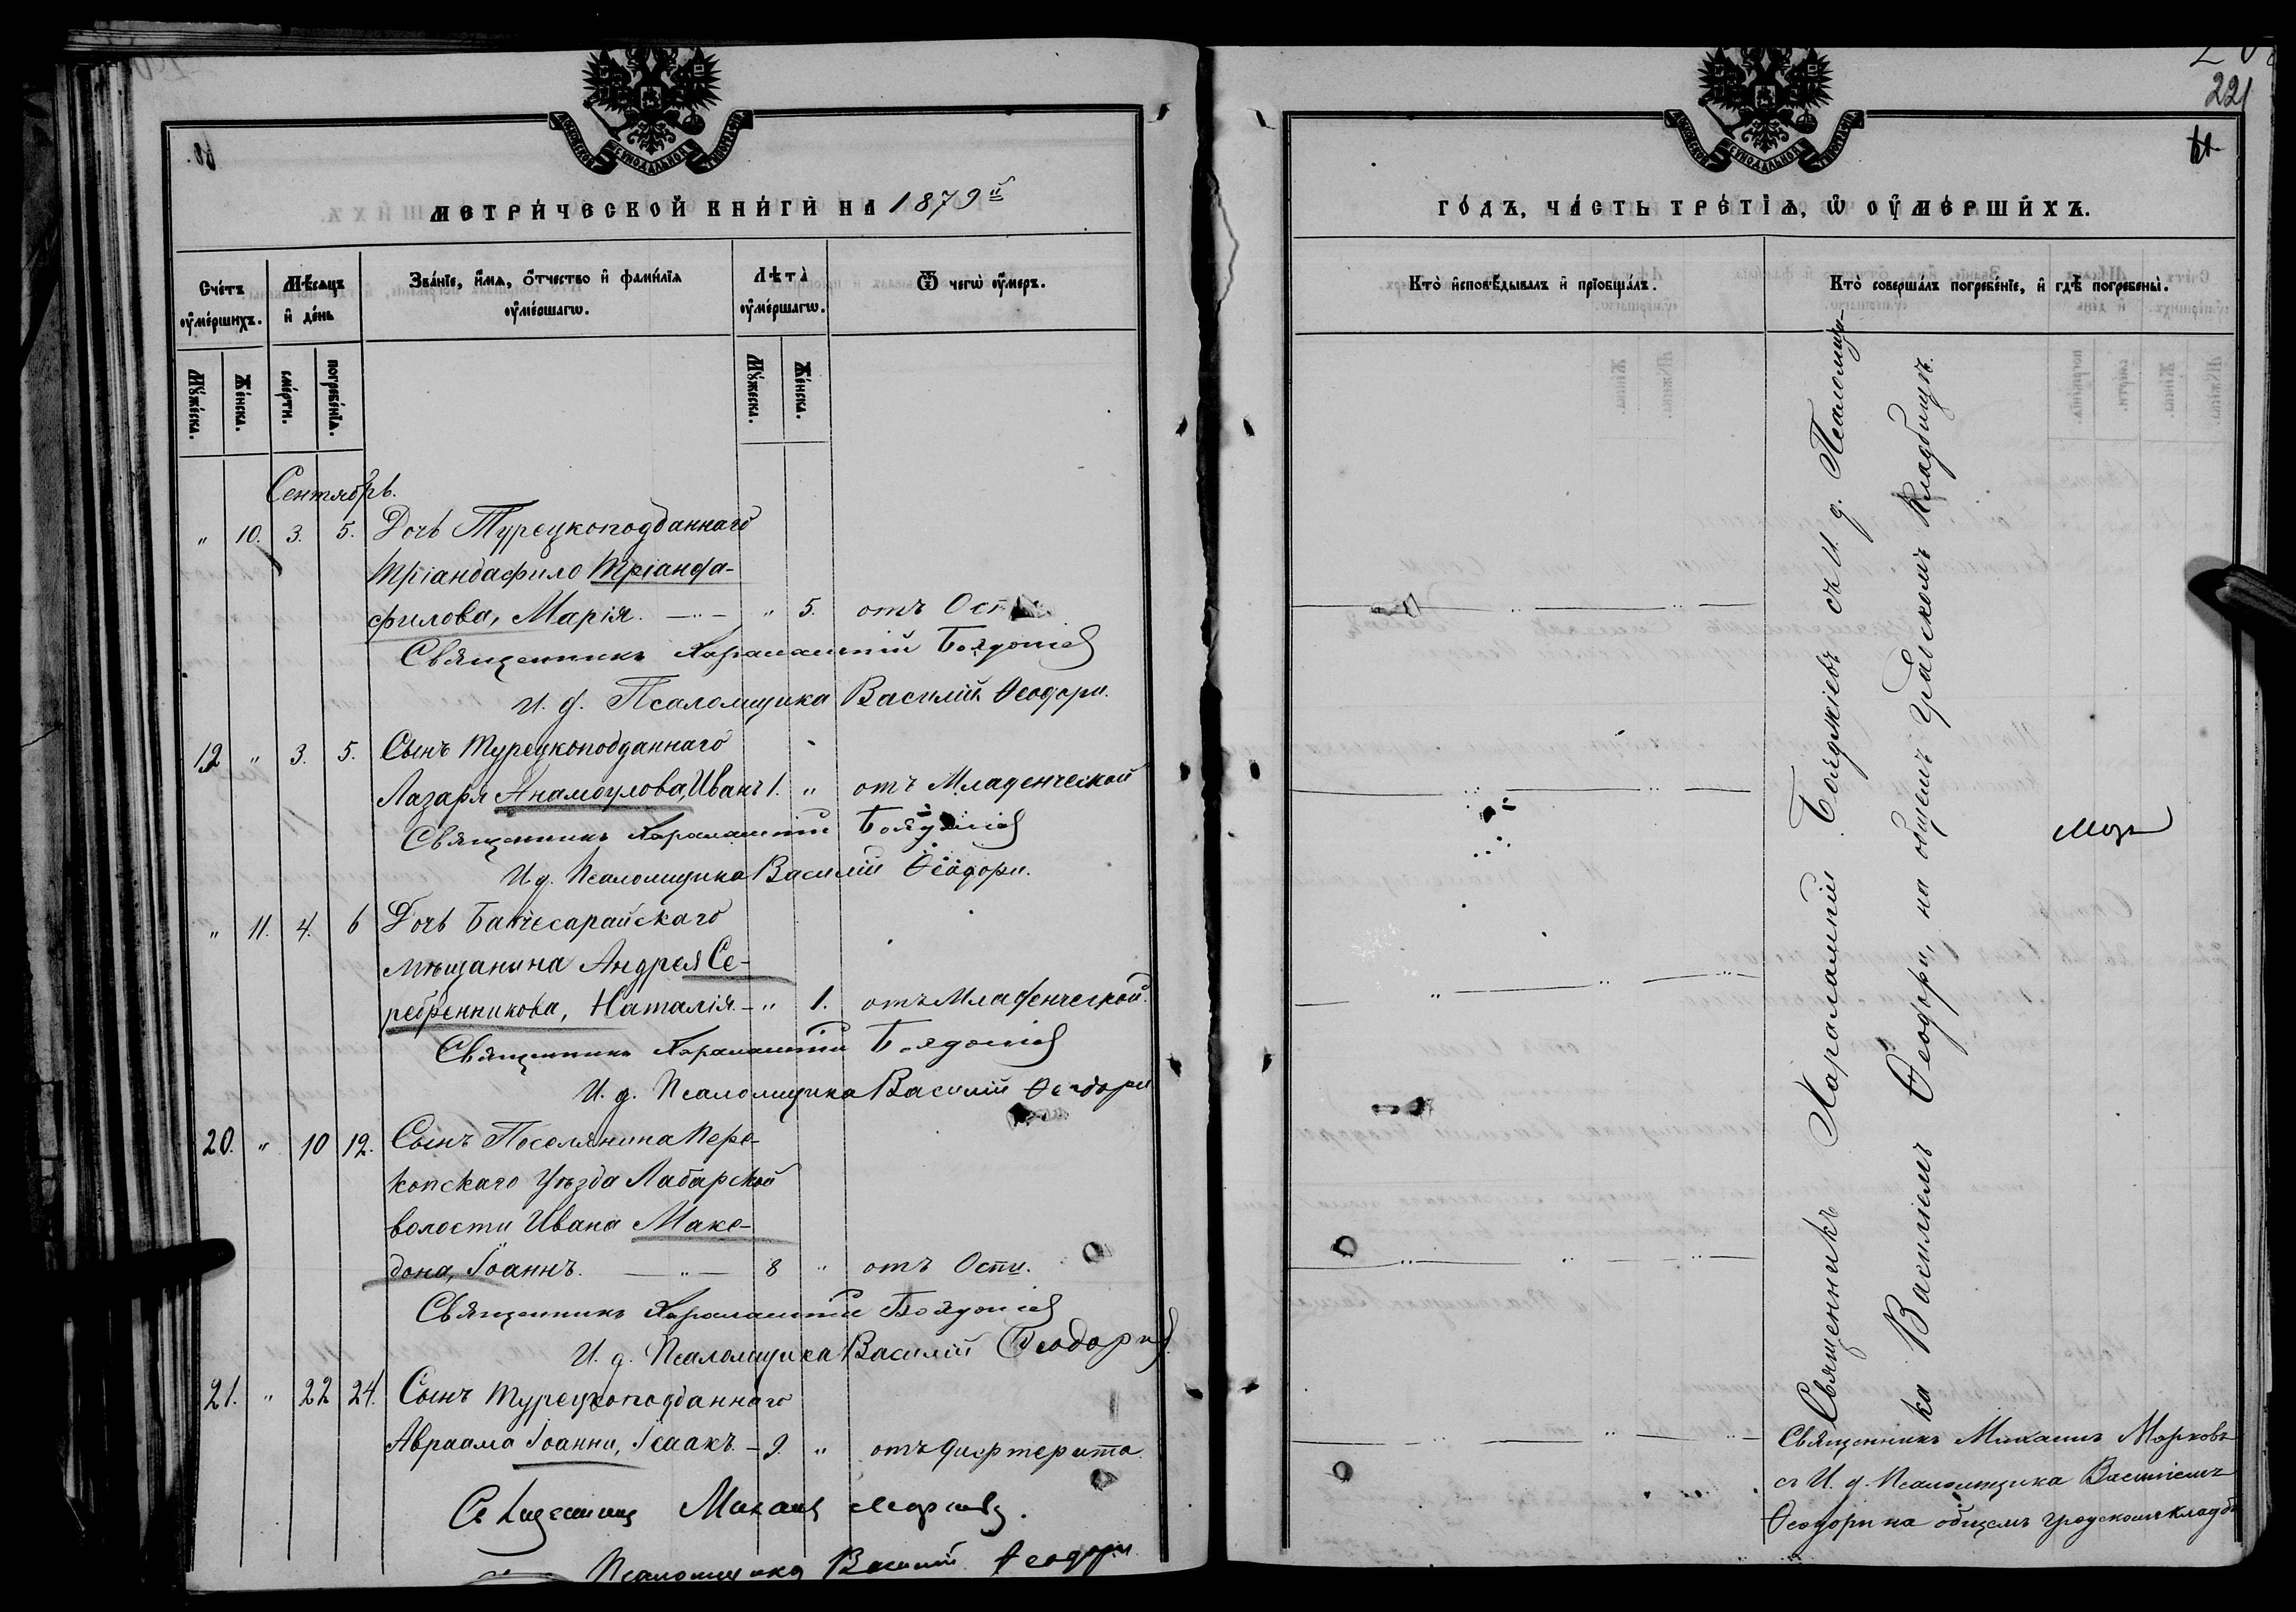 60.
МЕТРИ́ЧЕСКОЙ КНИ́ГИ НА 1879й
Сче́тъ оу҆ме́ршихъ.
Мѣ́сяцъ и҆ де́нь
Зва́нїе, и҆́мѧ, ѻ҆́тчество и҆ фами́лїѧ оу҆ме́ршагѡ.
Лѣ́та оу҆ме́ршагѡ.
Ѿ чегѡ̀ оу҆́меръ.
Мꙋ́жеска.
Же́нска.
сме́рти.
погребе́нїѧ.
Мꙋ́жеска.
Же́нска.
Сентябрь.
" 10. 3. 5. Дочь Турецкоподданнаго
Тріандафило Тріанда-
филова, Марія. " 5. отъ
Священникъ Харалампій
И. д. Псаломщика Василій Ѳеодори.
19 " 3. 5. Сынъ Турецкоподданнаго
Лазаря Анамоулова, Иванъ 1. " отъ Младенческой
Священникъ Харалампій
И. д. Псаломщика Василій Ѳеодори.
" 11. 4. 6 Дочь Бахчесарайскаго
мѣщанина Андрея Се-
ребренникова, Наталія " 1. отъ Младенческой.
Священникъ Харалампій
И. д. Псаломщика Василій Ѳеодори
20. " 10 12. Сынъ Поселянина Пере-
копскаго Уѣзда
волости Ивана Маке-
дона, Іоаннъ. 8 " отъ Оспи.
Священникъ Харалампій
И. д. Псаломщика Василій Ѳеодори
21. " 22 24. Сынъ Турецкоподданнаго
Авраама Іоанни, Ісаакъ. 9. " отъ дифтерита.
Священникъ Михаилъ Марковъ.
Псаломщика Василій Ѳеодори
221
61.
ГО́ДЪ, ЧА́СТЬ ТРЕ́ТЇѦ, Ѡ҆ ОУ҆МЕ́РШИХЪ.
Кто̀ и҆сповѣ́дывалъ и҆ прїобща́лъ.
Кто̀ соверша́лъ погребе́нїе, и҆ гдѣ̀ погребены̀.
Священникъ Харалампій Бояджіевъ съ И. д. Псаломщи-
ка Василіемъ Ѳеодори, на общемъ градскомъ кладбищѣ.
Священникъ Михаилъ Марковъ
съ И. д. Псаломщика Василіемъ
Ѳеодори на общемъ градскомъ кладб